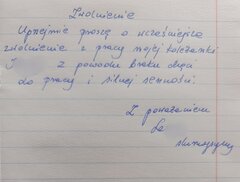 Zwolnienie
Uprzejmie proszę o wcześniejsze
zwolnienie z pracy mojej koleżanki
J z powodu braku chęci
do pracy i silnej senności.
Z poważaniem